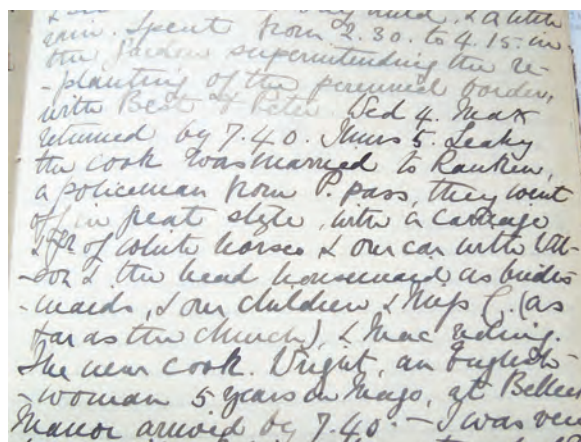 mild, & a little
rain. Spent from 2.30. to 4.15. in
the garden superintending the re-
-planting of the perennial border,
with Best & Peter. Wed 4. Max
returned by 7.40. Thurs 5. Leaky
the cook was married to Ranken,
a policeman from P. pass, they went
off in great style, with a carriage
& pr of white horses & our car with
& the head housemaid as brides
-maids, & our children & Miss C. (as
far as the church), & Mac riding.
The new cook. Wright, an English-
-woman 5 years in at
Manor arrived by 7.40. – I was very